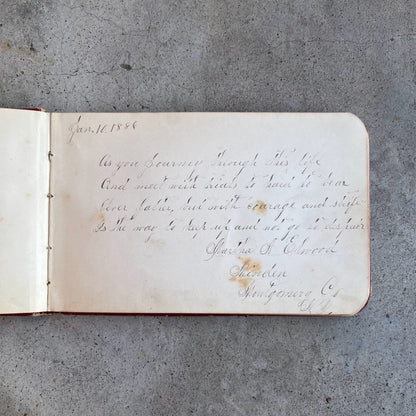 Jan. 10, 1886
As you journey through this life
And meet with trials to hard to bear
Ever battle, but with courage and
Is the way to keep up and not go to dispair
Martha A Elwood
Minden
Montgomery Co
N.Y.